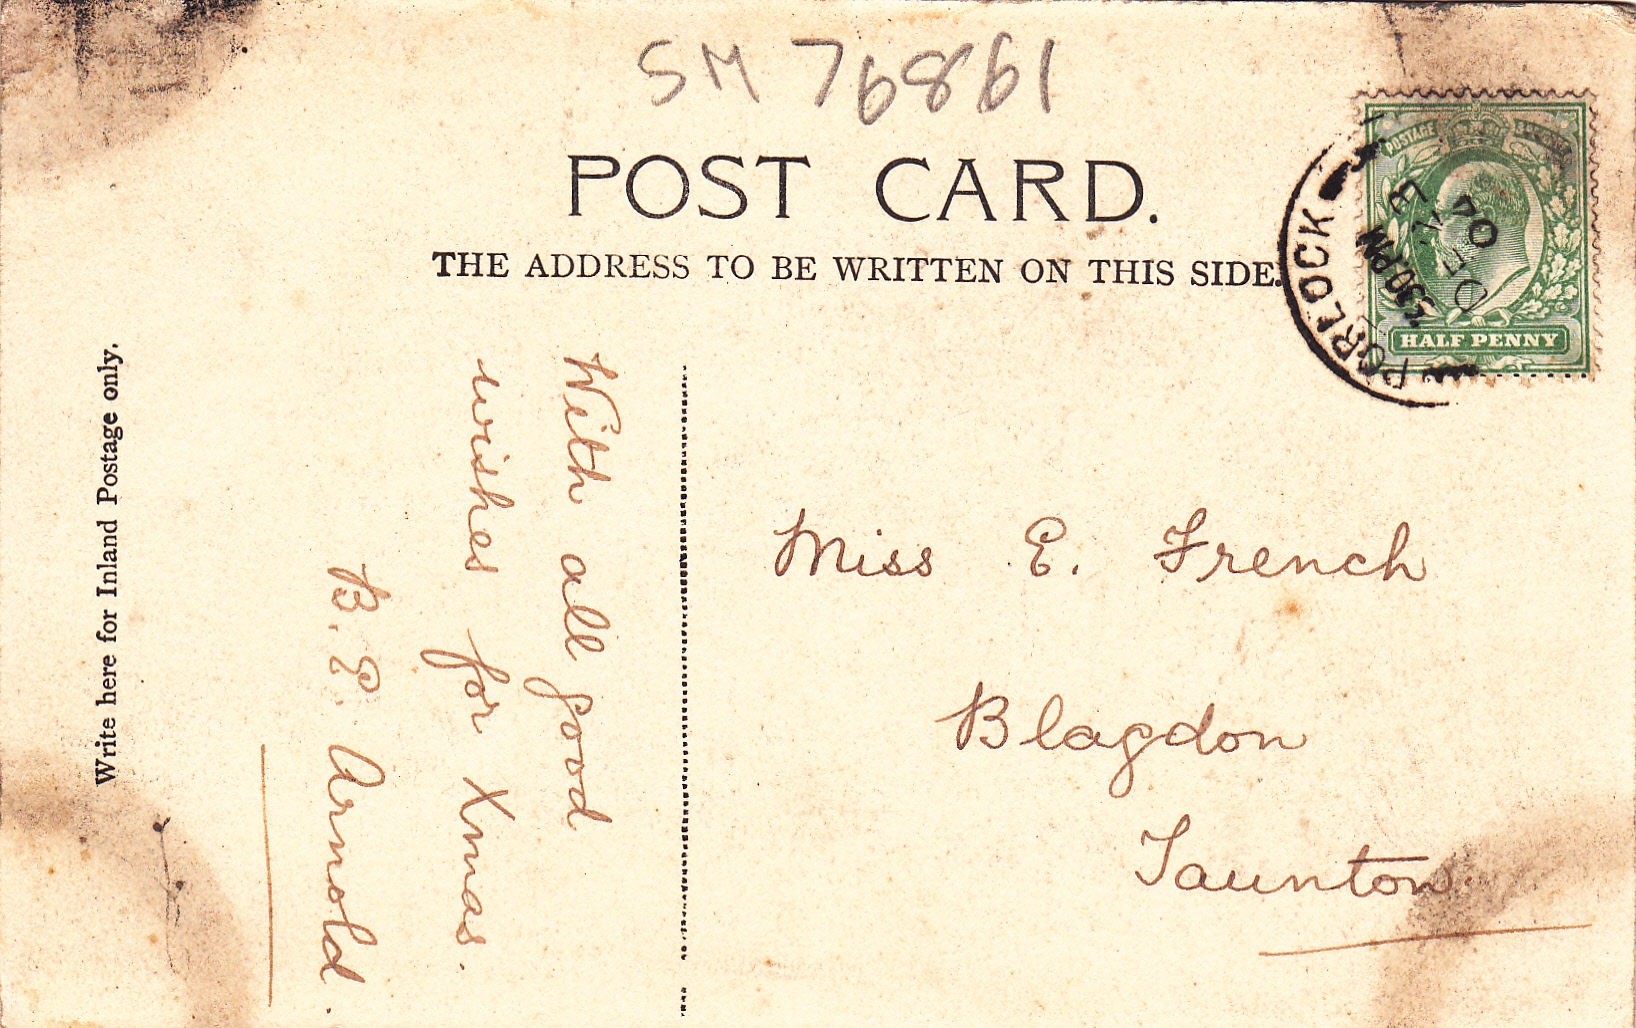 SM 76861
POST CARD.
THE ADDRESS TO BE WRITTEN ON THIS SIDE.
POSTAGE
HALF PENNY
PORLOCK
Write here for Inland Postage only.
With all good
wishes for Xmas.
B. E. Arnold.
Miss E. French
Blagdon
Taunton.